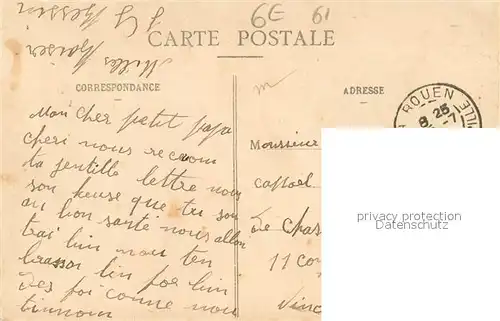 6E 61
Milles Baiser
CARTE POSTALE
CORRESPONDANCE
ADRESSE
ROUEN
8 25
Mon cher petit papa
cheri nous recevon
ta gentille lettre nou
son heuse que tu soi
an bon santé nous allon
trai bin nou ten
brasson bin for bin
des foi conne nou
tinnom
Monsieur
caporal
Le Chas
11 co
Vinc
privacy protection
datenschutz